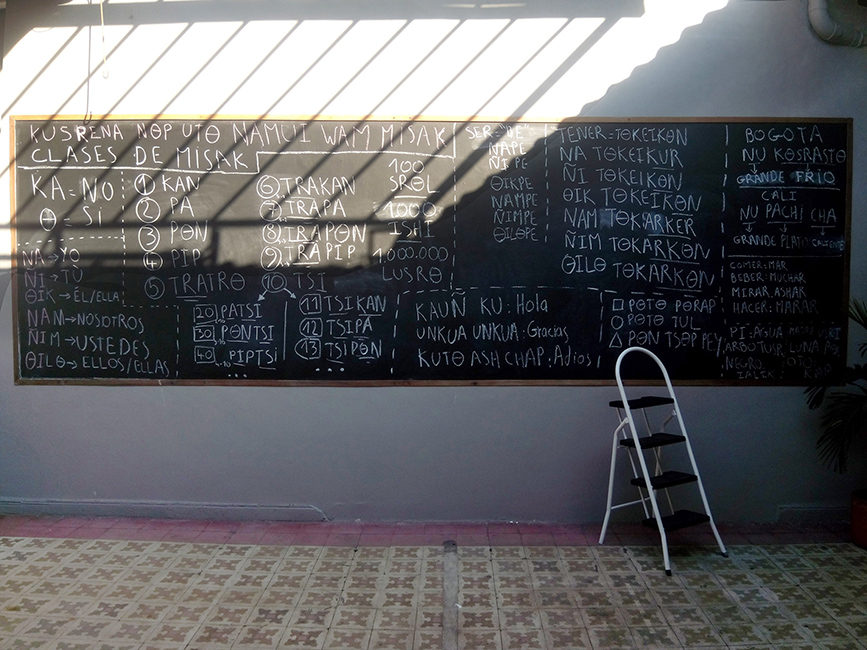 KUSRENA NΘP UTΘ NAMUI WAM MISAK
CLASES DE MISAK
KA=NO
Θ=SÍ
NA→YO
ÑI→TÚ
ΘIK→ÉL/ELLA
NAM→NOSOTROS
ÑIM→USTEDES
ΘILΘ→ELLOS/ELLAS
① KAN
② PA
③ PΘN
④ PIP
⑤ TRATRΘ
⑥ TRAKAN
⑦ TRAPA
⑧ TRAPΘN
⑨ TRAPIP
⑩ TSI
100
SRΘL
1000
ISHI
1000.000
LUSRΘ
20 PATSI
30 PΘNTSI
40 PIPTSI
...
⑪ TSIKAN
⑫ TSIPA
⑬ TSIPΘN
...
SER="DE"
NAPE
ÑIPE
ΘIKPE
NAMPE
ÑIMPE
ΘILΘPE
TENER=TΘKEIKΘN
NA TΘKEIKUR
ÑI TΘKEIKΘN
ΘIK TΘKEIKΘN
NAM TΘKARKER
ÑIM TΘKARKΘN
ΘILΘ TΘKARKΘN
KAUÑ KU: Hola
UNKUA UNKUA: Gracias
KUTΘ ASH CHAP: Adios
□ PΘTΘ PΘRAP
○ PΘTΘ TUL
△ PΘN TSΘP PEY
BOGOTA
NU KΘSRASTΘ
GRANDE FRÍO
CALI
NU PACHI CHA
GRANDE PLATO CALIENTE
COMER=MAR
BEBER=MUCHAR
MIRAR=ASHAR
HACER=MARAR
PI=AGUA
LUNA
NEGRO